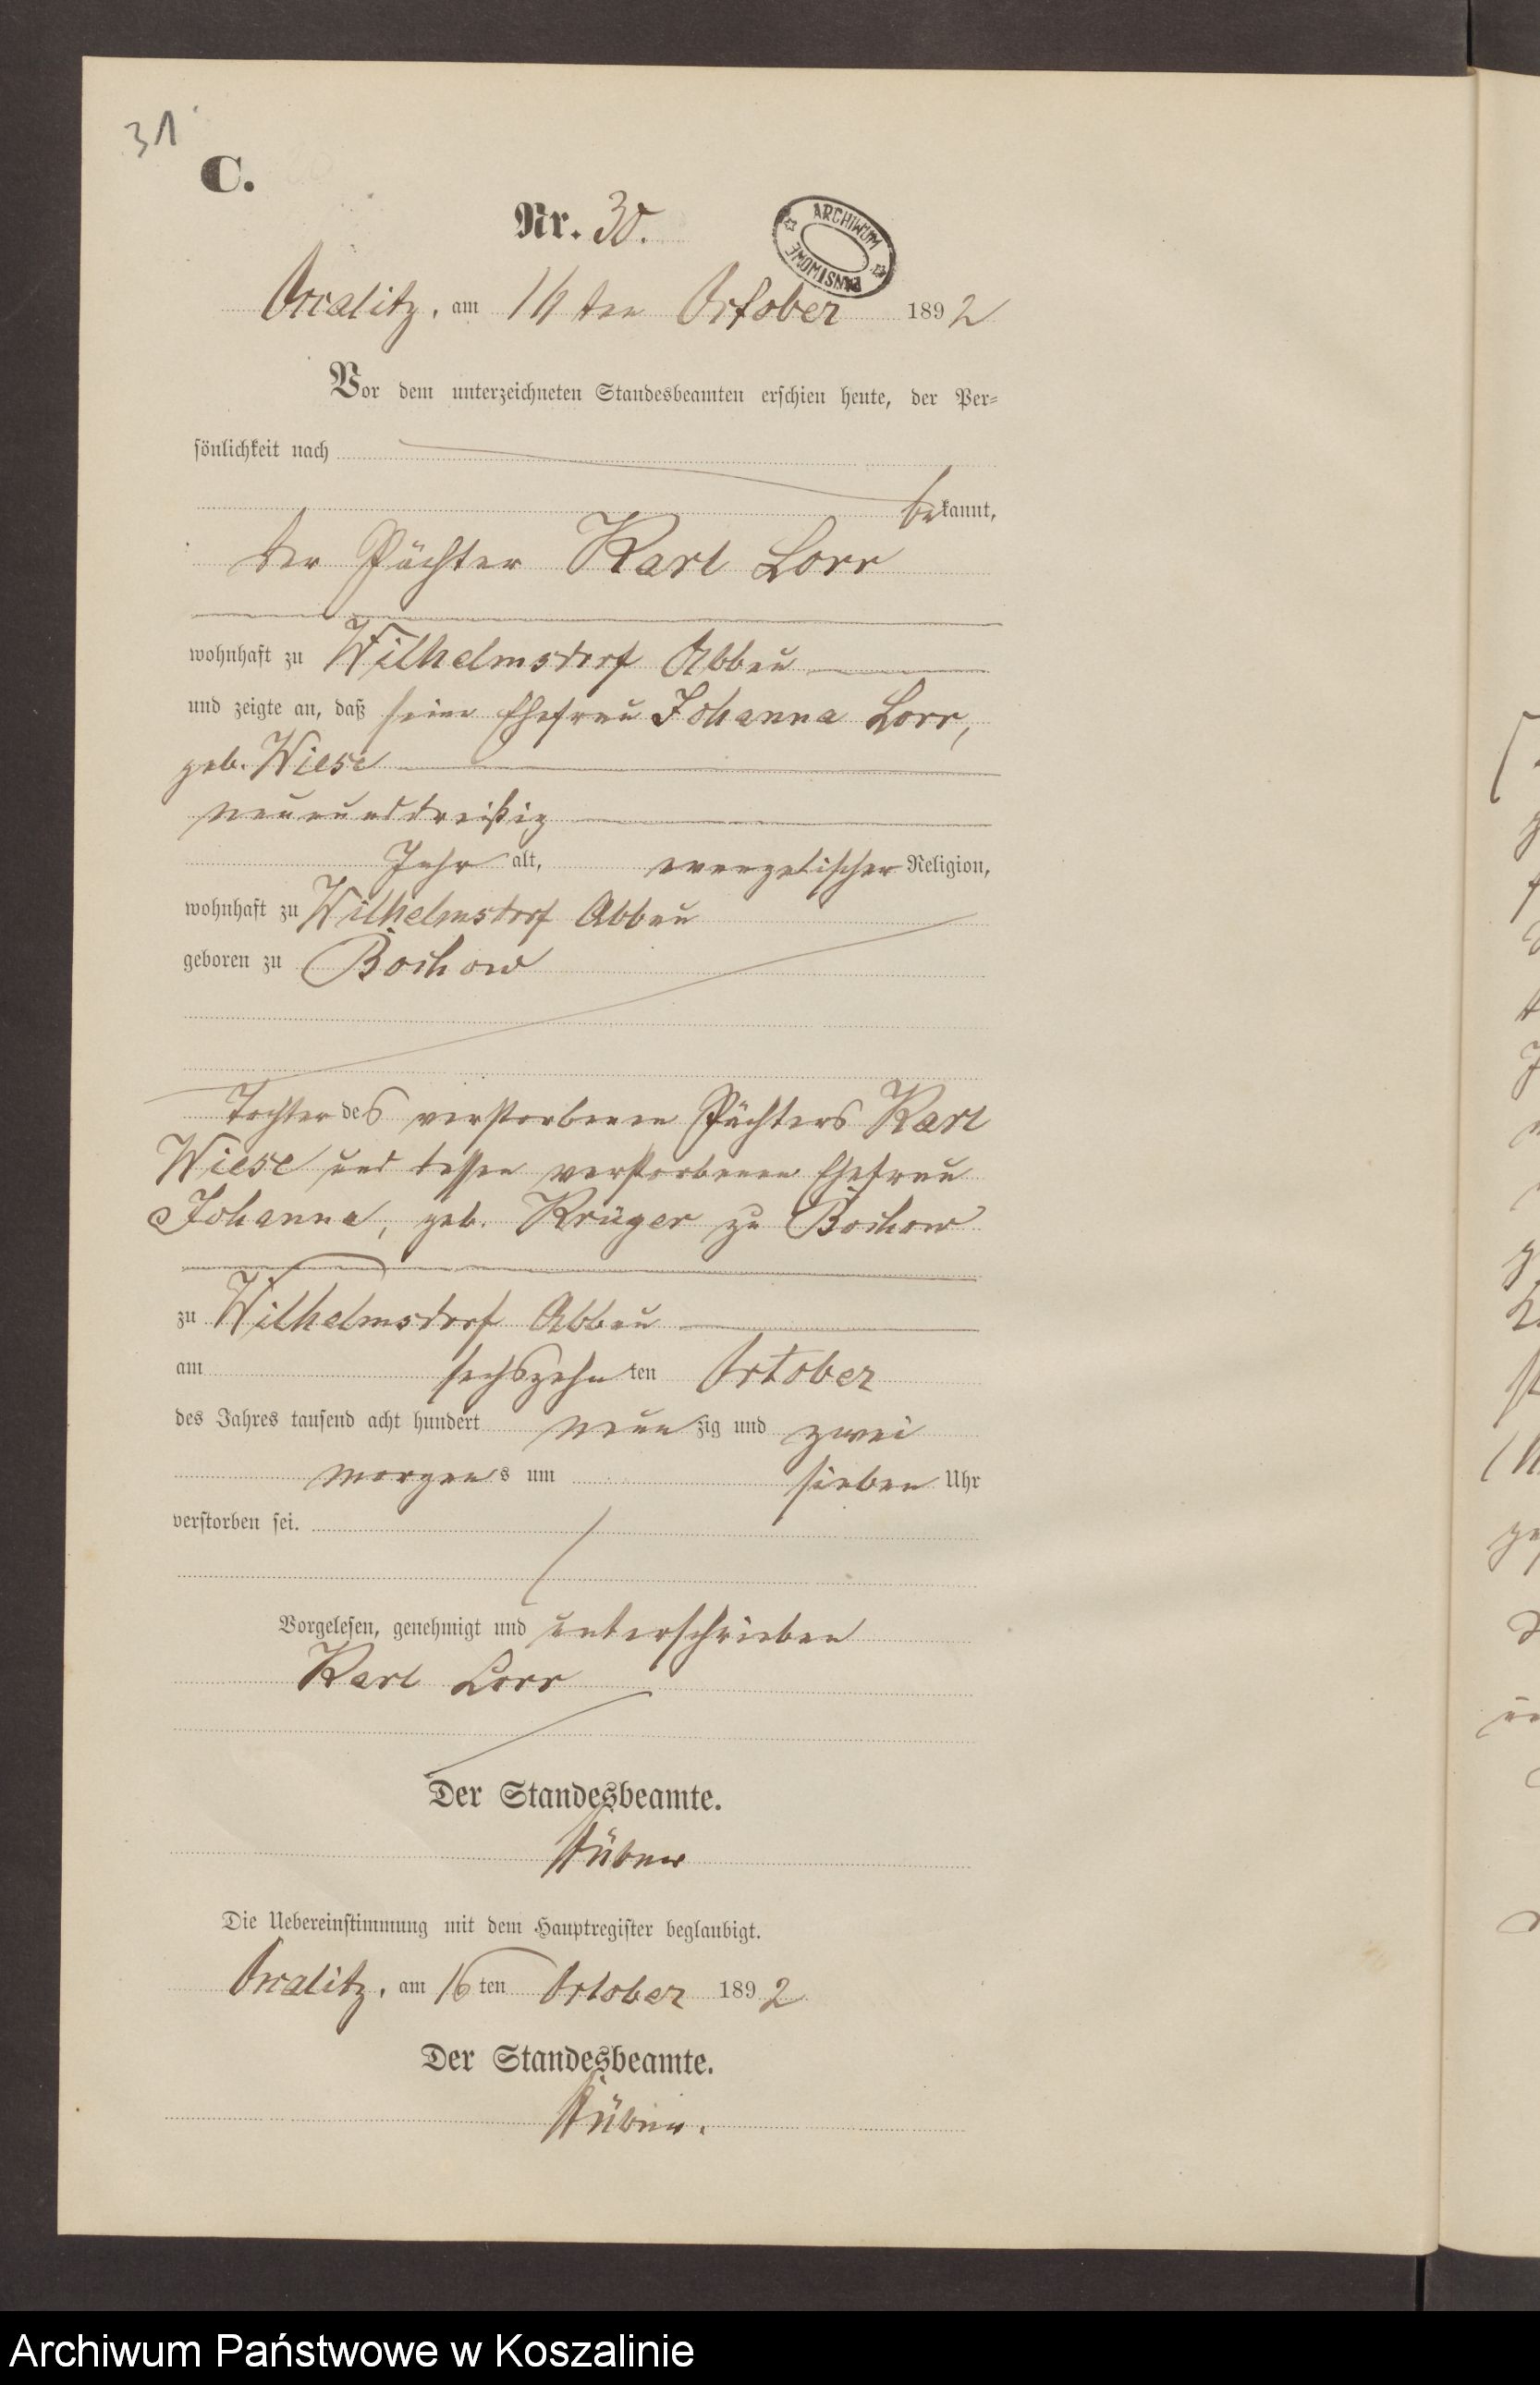 31
C.
Nr. 30.
ARCHIWUM PAŃSTWOWE
Occalitz, am 16 ten October 1892
Vor dem unterzeichneten Standesbeamten erschien heute, der Per-
sönlichkeit nach
bekannt,
der Pächter Karl Lorr
wohnhaft zu Wilhelmsdorf Abbau
und zeigte an, daß seine Ehefrau Johanna Lorr,
geb. Wiese
neununddreißig
Jahr alt, evangelischer Religion,
wohnhaft zu Wilhelmsdorf Abbau
geboren zu Bochow
Tochter des verstorbenen Pächters Karl
Wiese und dessen verstorbenen Ehefrau
Johanna, geb. Krüger zu Bochow
zu Wilhelmsdorf Abbau
am sechszehnten October
des Jahres tausend acht hundert neunzig und zwei
morgens um sieben Uhr
verstorben sei.
Vorgelesen, genehmigt und unterschrieben
Karl Lorr
Der Standesbeamte.
Die Uebereinstimmung mit dem Hauptregister beglaubigt.
Occalitz, am 16ten October 1892
Der Standesbeamte.
Archiwum Państwowe w Koszalinie